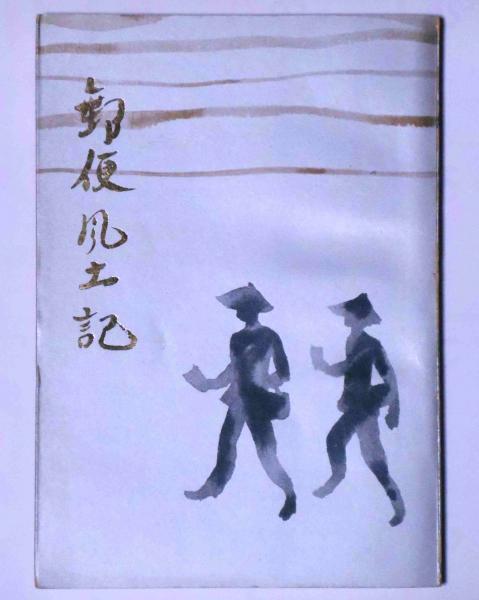 郵便風土記